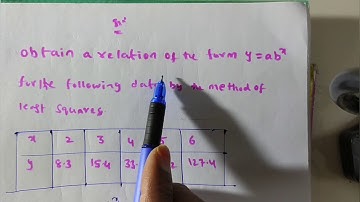 obtain a relation of the form y=ab^x
for the following data by the method of
least squares
x 2 3 4 5 6
y 8.3 15.4 33. 2 127.4